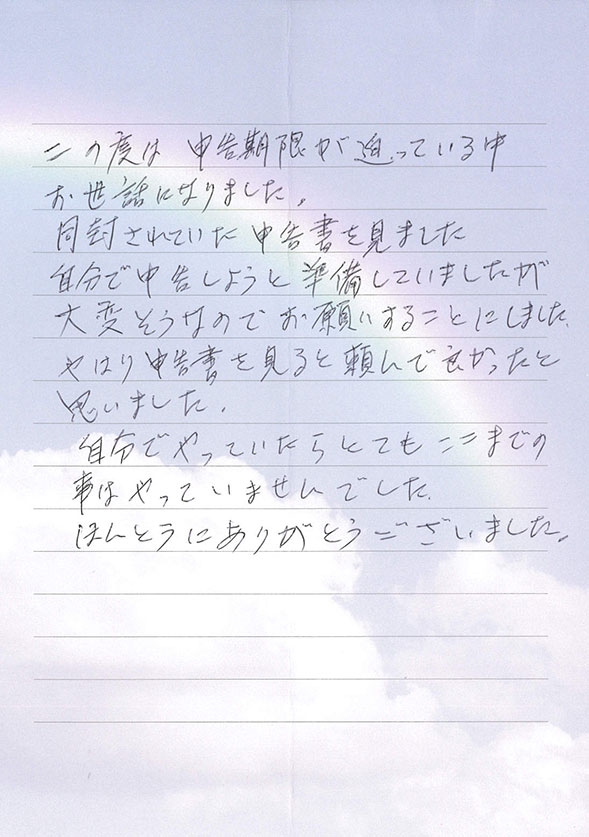 この度は 申告期限が迫っている中
お世話になりました。
同封されていた申告書を見ました
自分で申告しようと準備していましたが
大変そうなのでお願いすることにしました。
やはり申告書を見ると頼んで良かったと
思いました。
自分でやっていたらとてもここまでの
事はやっていませんでした。
ほんとうにありがとうございました。